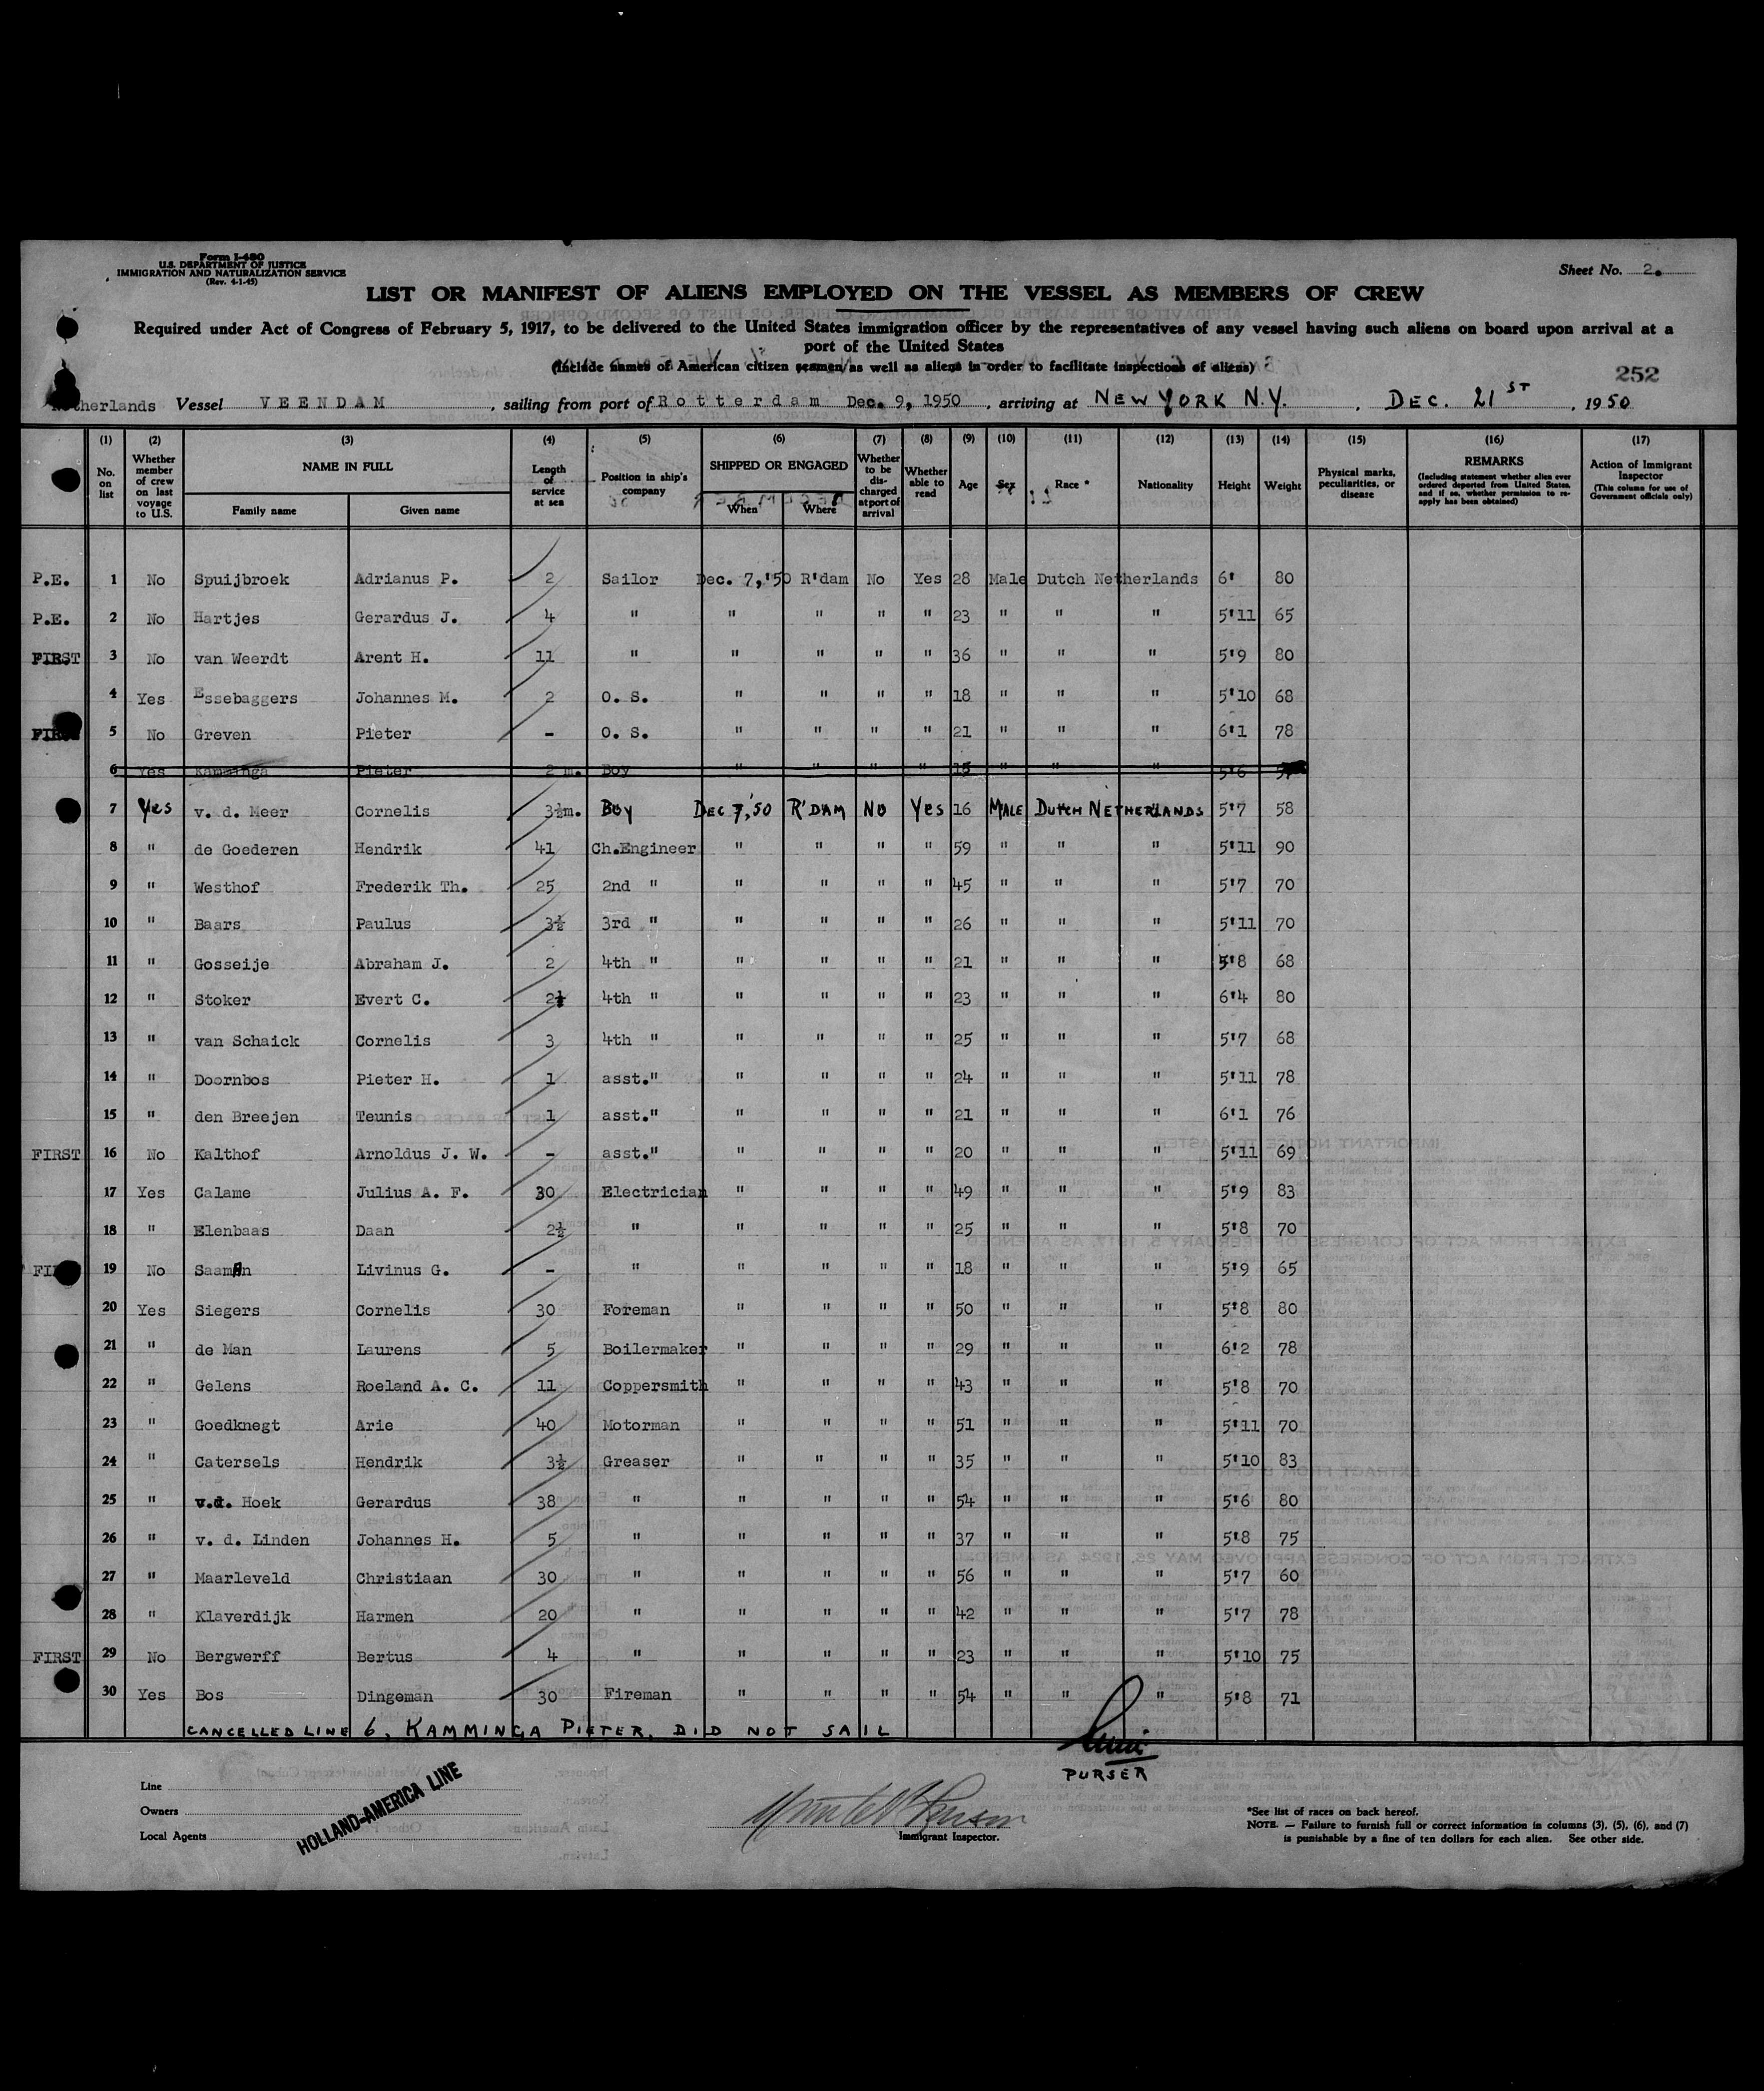 Form I-480
U.S. DEPARTMENT OF JUSTICE
IMMIGRATION AND NATURALIZATION SERVICE
(Rev. 4-1-45)
Sheet No. 2.
LIST OR MANIFEST OF ALIENS EMPLOYED ON THE VESSEL AS MEMBERS OF CREW
Required under Act of Congress of February 5, 1917, to be delivered to the United States immigration officer by the representatives of any vessel having such aliens on board upon arrival at a
port of the United States
(Include names of American citizen seamen as well as aliens in order to facilitate inspections of aliens)
252
Netherlands Vessel VEENDAM, sailing from port of Rotterdam Dec. 9, 1950, arriving at NEW YORK N.Y., DEC. 21ST, 1950
(1) No. on list (2) Whether member of crew on last voyage to U.S. (3) NAME IN FULL Family name Given name (4) Length of service at sea (5) Position in ship's company (6) SHIPPED OR ENGAGED When Where (7) Whether to be discharged at port of arrival (8) Whether able to read (9) Age (10) Sex (11) Race * (12) Nationality (13) Height (14) Weight (15) Physical marks, peculiarities, or disease (16) REMARKS (Including statement whether alien ever ordered deported from United States, and if so, whether permission to re-apply has been obtained) (17) Action of Immigrant Inspector (This column for use of Government officials only)
P.E. 1 No Spuijbroek Adrianus P. 2 Sailor Dec. 7,'50 R'dam No Yes 28 Male Dutch Netherlands 6' 80
P.E. 2 No Hartjes Gerardus J. 4 " " " " " 23 " " " 5'11 65
FIRST 3 No van Weerdt Arent H. 11 " " " " " 36 " " " 5'9 80
4 Yes Essebaggers Johannes M. 2 O. S. " " " " 18 " " " 5'10 68
FIRST 5 No Greven Pieter - O. S. " " " " 21 " " " 6'1 78
6 Yes Kamminga Pieter 2 m. Boy " " " " 15 " " " 5'6
7 Yes v. d. Meer Cornelis 3½m. Boy DEC 7,'50 R'DAM NO Yes 16 MALE DUTCH NETHERLANDS 5'7 58
8 " de Goederen Hendrik 41 Ch.Engineer " " " " 59 " " " 5'11 90
9 " Westhof Frederik Th. 25 2nd " " " " " 45 " " " 5'7 70
10 " Baars Paulus 3½ 3rd " " " " " 26 " " " 5'11 70
11 " Gosseije Abraham J. 2 4th " " " " " 21 " " " 5'8 68
12 " Stoker Evert C. 2½ 4th " " " " " 23 " " " 6'4 80
13 " van Schaick Cornelis 3 4th " " " " " 25 " " " 5'7 68
14 " Doornbos Pieter H. 1 asst." " " " " 24 " " " 5'11 78
15 " den Breejen Teunis 1 asst." " " " " 21 " " " 6'1 76
FIRST 16 No Kalthof Arnoldus J. W. - asst." " " " " 20 " " " 5'11 69
17 Yes Calame Julius A. F. 30 Electrician " " " " 49 " " " 5'9 83
18 " Elenbaas Daan 2½ " " " " " 25 " " " 5'8 70
FI 19 No Saaman Livinus G. - " " " " " 18 " " " 5'9 65
20 Yes Siegers Cornelis 30 Foreman " " " " 50 " " " 5'8 80
21 " de Man Laurens 5 Boilermaker " " " " 29 " " " 6'2 78
22 " Gelens Roeland A. C. 11 Coppersmith " " " " 43 " " " 5'8 70
23 " Goedknegt Arie 40 Motorman " " " " 51 " " " 5'11 70
24 " Catersels Hendrik 3½ Greaser " " " " 35 " " " 5'10 83
25 " v.d. Hoek Gerardus 38 " " " " " 54 " " " 5'6 80
26 " v. d. Linden Johannes H. 5 " " " " " 37 " " " 5'8 75
27 " Maarleveld Christiaan 30 " " " " " 56 " " " 5'7 60
28 " Klaverdijk Harmen 20 " " " " " 42 " " " 5'7 78
FIRST 29 No Bergwerff Bertus 4 " " " " " 23 " " " 5'10 75
30 Yes Bos Dingeman 30 Fireman " " " " 54 " " " 5'8 71
CANCELLED LINE 6, KAMMINGA PIETER, DID NOT SAIL
PURSER
Line
Owners
Local Agents
HOLLAND-AMERICA LINE
Immigrant Inspector.
*See list of races on back hereof.
NOTE. — Failure to furnish full or correct information in columns (3), (5), (6), and (7)
is punishable by a fine of ten dollars for each alien. See other side.